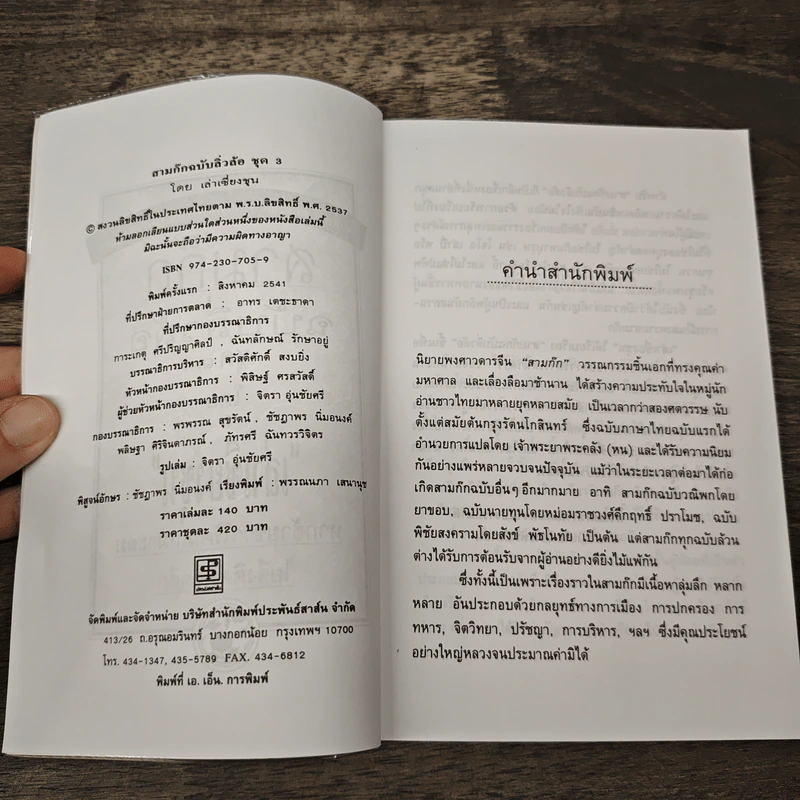 สามก๊กฉบับลิ่วล้อ ชุด 3
โดย เล่าเซี่ยงชุน
© สงวนลิขสิทธิ์ในประเทศไทยตาม พ.ร.บ.ลิขสิทธิ์ พ.ศ. 2537
ห้ามลอกเลียนแบบส่วนใดส่วนหนึ่งของหนังสือเล่มนี้
มิฉะนั้นจะถือว่ามีความผิดทางอาญา
ISBN 974-230-705-9
พิมพ์ครั้งแรก : สิงหาคม 2541
ที่ปรึกษาฝ่ายการตลาด : อาทร เตชะธาดา
ที่ปรึกษากองบรรณาธิการ
การะเกตุ ศรีปริญญาศิลป์ , ฉันทลักษณ์ รักษาอยู่
บรรณาธิการบริหาร : สวัสดิศักดิ์ สงบยิ่ง
หัวหน้ากองบรรณาธิการ : พิสิษฐ์ ศรสวัสดิ์
ผู้ช่วยหัวหน้ากองบรรณาธิการ : จิตรา อุ่นชัยศรี
กองบรรณาธิการ : พรพรรณ สุขรัตน์ , ชัชฎาพร นิ่มอนงค์
พลิษฐา ศิริจินดาภรณ์ , ภัทรศรี ฉันทวรวิจิตร
รูปเล่ม : จิตรา อุ่นชัยศรี
พิสูจน์อักษร : ชัชฎาพร นิ่มอนงค์ เรียงพิมพ์ : พรรณนภา เสนานุช
ราคาเล่มละ 140 บาท
ราคาชุดละ 420 บาท
จัดพิมพ์และจัดจำหน่าย บริษัทสำนักพิมพ์ประพันธ์สาส์น จำกัด
413/26 ถ.อรุณอมรินทร์ บางกอกน้อย กรุงเทพฯ 10700
โทร. 434-1347, 435-5789 FAX. 434-6812
พิมพ์ที่ เอ. เอ็น. การพิมพ์
คำนำสำนักพิมพ์
นิยายพงศาวดารจีน “สามก๊ก” วรรณกรรมชิ้นเอกที่ทรงคุณค่า
มหาศาล และเลื่องลือมาช้านาน ได้สร้างความประทับใจในหมู่นัก
อ่านชาวไทยมาหลายยุคหลายสมัย เป็นเวลากว่าสองศตวรรษ นับ
ตั้งแต่สมัยต้นกรุงรัตนโกสินทร์ ซึ่งฉบับภาษาไทยฉบับแรกได้
อำนวยการแปลโดย เจ้าพระยาพระคลัง (หน) และได้รับความนิยม
กันอย่างแพร่หลายจวบจนปัจจุบัน แม้ว่าในระยะเวลาต่อมาได้ก่อ
เกิดสามก๊กฉบับอื่นๆ อีกมากมาย อาทิ สามก๊กฉบับวณิพกโดย
ยาขอบ, ฉบับนายทุนโดยหม่อมราชวงศ์คึกฤทธิ์ ปราโมช, ฉบับ
พิชัยสงครามโดยสังข์ พัธโนทัย เป็นต้น แต่สามก๊กทุกฉบับล้วน
ต่างได้รับการต้อนรับจากผู้อ่านอย่างดียิ่งไม่แพ้กัน
ซึ่งทั้งนี้เป็นเพราะเรื่องราวในสามก๊กมีเนื้อหาลุ่มลึก หลาก
หลาย อันประกอบด้วยกลยุทธ์ทางการเมือง การปกครอง การ
ทหาร, จิตวิทยา, ปรัชญา, การบริหาร, ฯลฯ ซึ่งมีคุณประโยชน์
อย่างใหญ่หลวงจนประมาณค่ามิได้